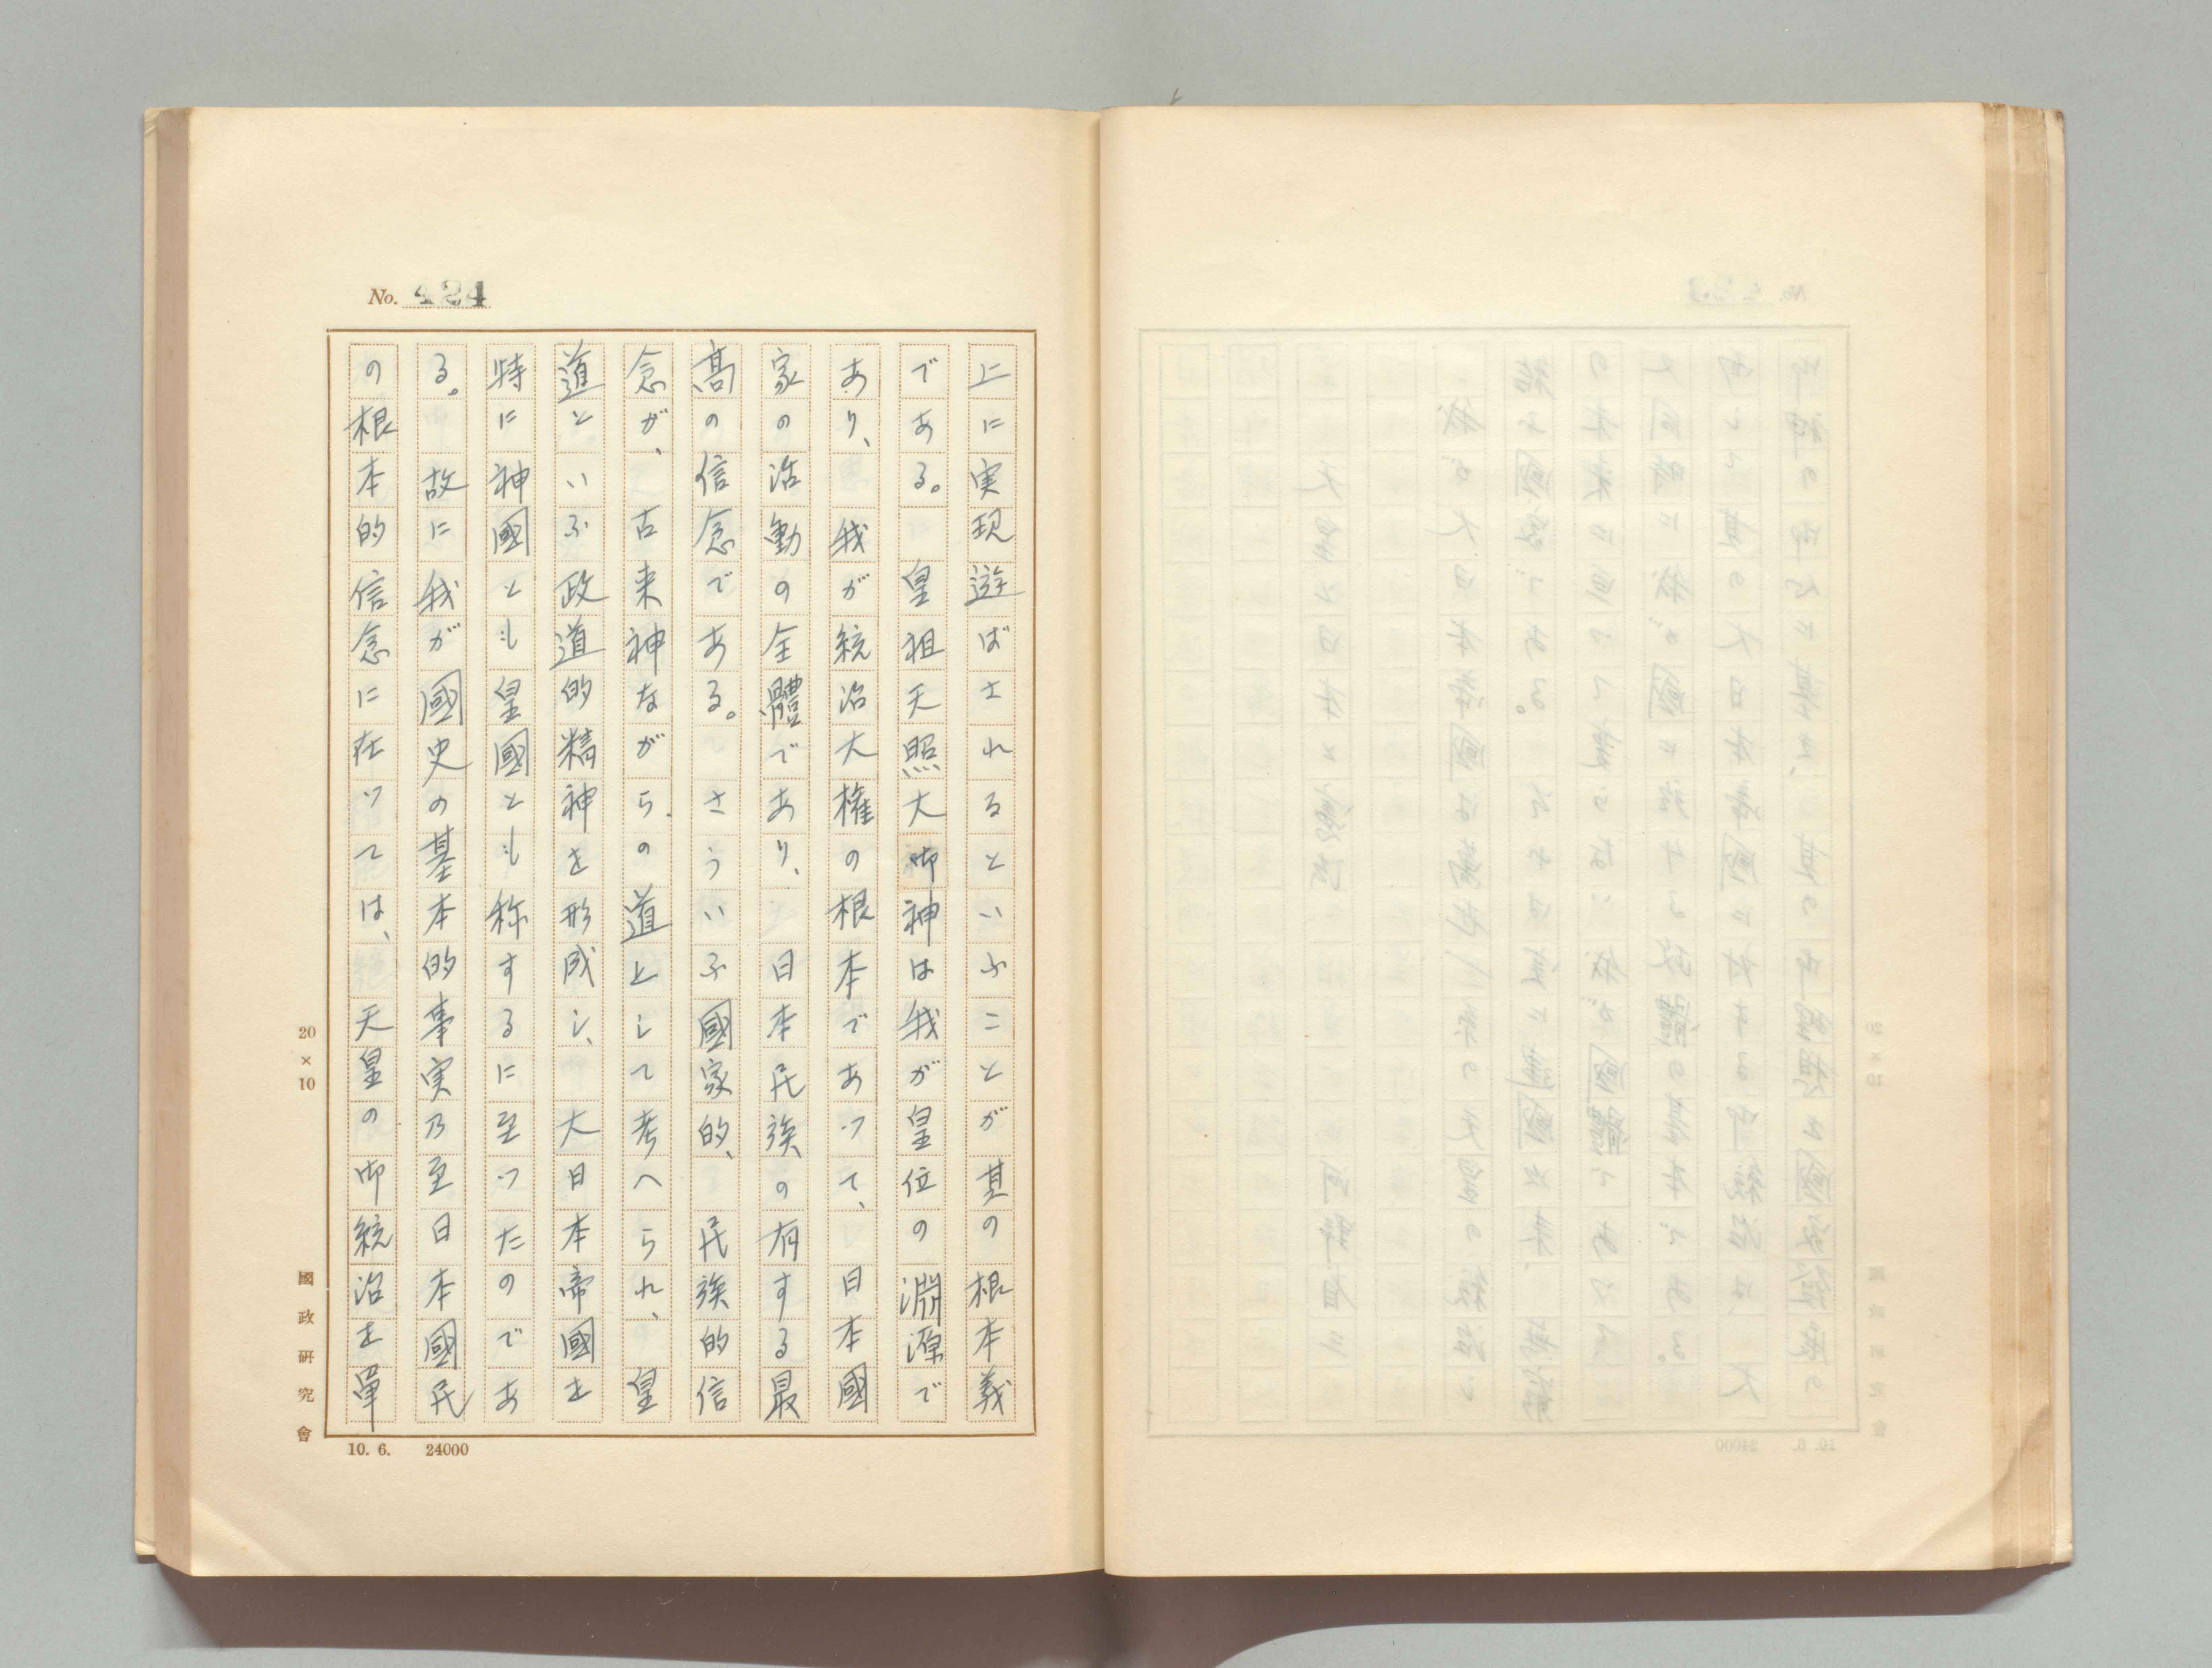 No. 424
上に実現遊ばされるといふことが其の根本義
である。　皇祖天照大御神は我が皇位の淵源で
あり、我が統治大権の根本であつて、日本國
家の活動の全體であり、日本民族の有する最
高の信念である。さういふ國家的、民族的信
念が、古来神ながらの道として考へられ、皇
道といふ政道的精神を形成し、大日本帝國を
特に神國とも皇國とも称するに至つたのであ
る。故に我が國史の基本的事実乃至日本國民
の根本的信念に在つては、天皇の御統治を単
20×10
國政研究會
10. 6.　24000